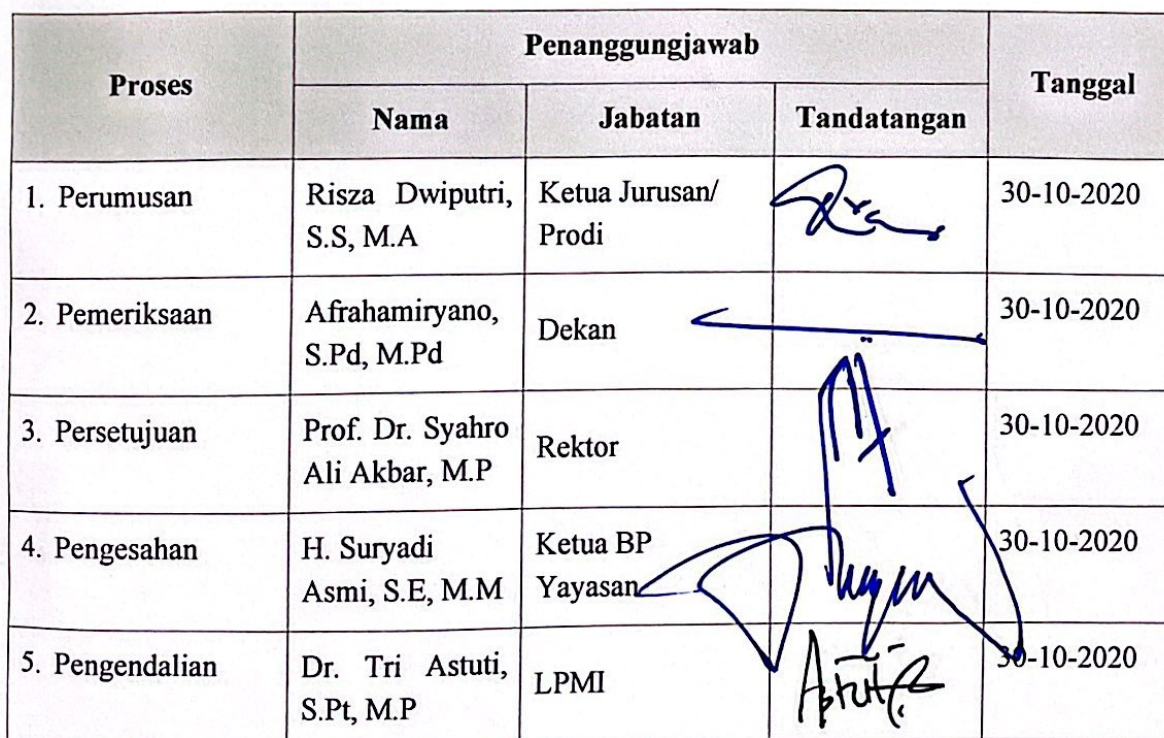 Proses
Penanggungjawab
Tanggal
Nama
Jabatan
Tandatangan
1. Perumusan
Risza Dwiputri,
S.S, M.A
Ketua Jurusan/
Prodi
30-10-2020
2. Pemeriksaan
Afrahamiryano,
S.Pd, M.Pd
Dekan
30-10-2020
3. Persetujuan
Prof. Dr. Syahro
Ali Akbar, M.P
Rektor
30-10-2020
4. Pengesahan
H. Suryadi
Asmi, S.E, M.M
Ketua BP
Yayasan
30-10-2020
5. Pengendalian
Dr. Tri Astuti,
S.Pt, M.P
LPMI
30-10-2020